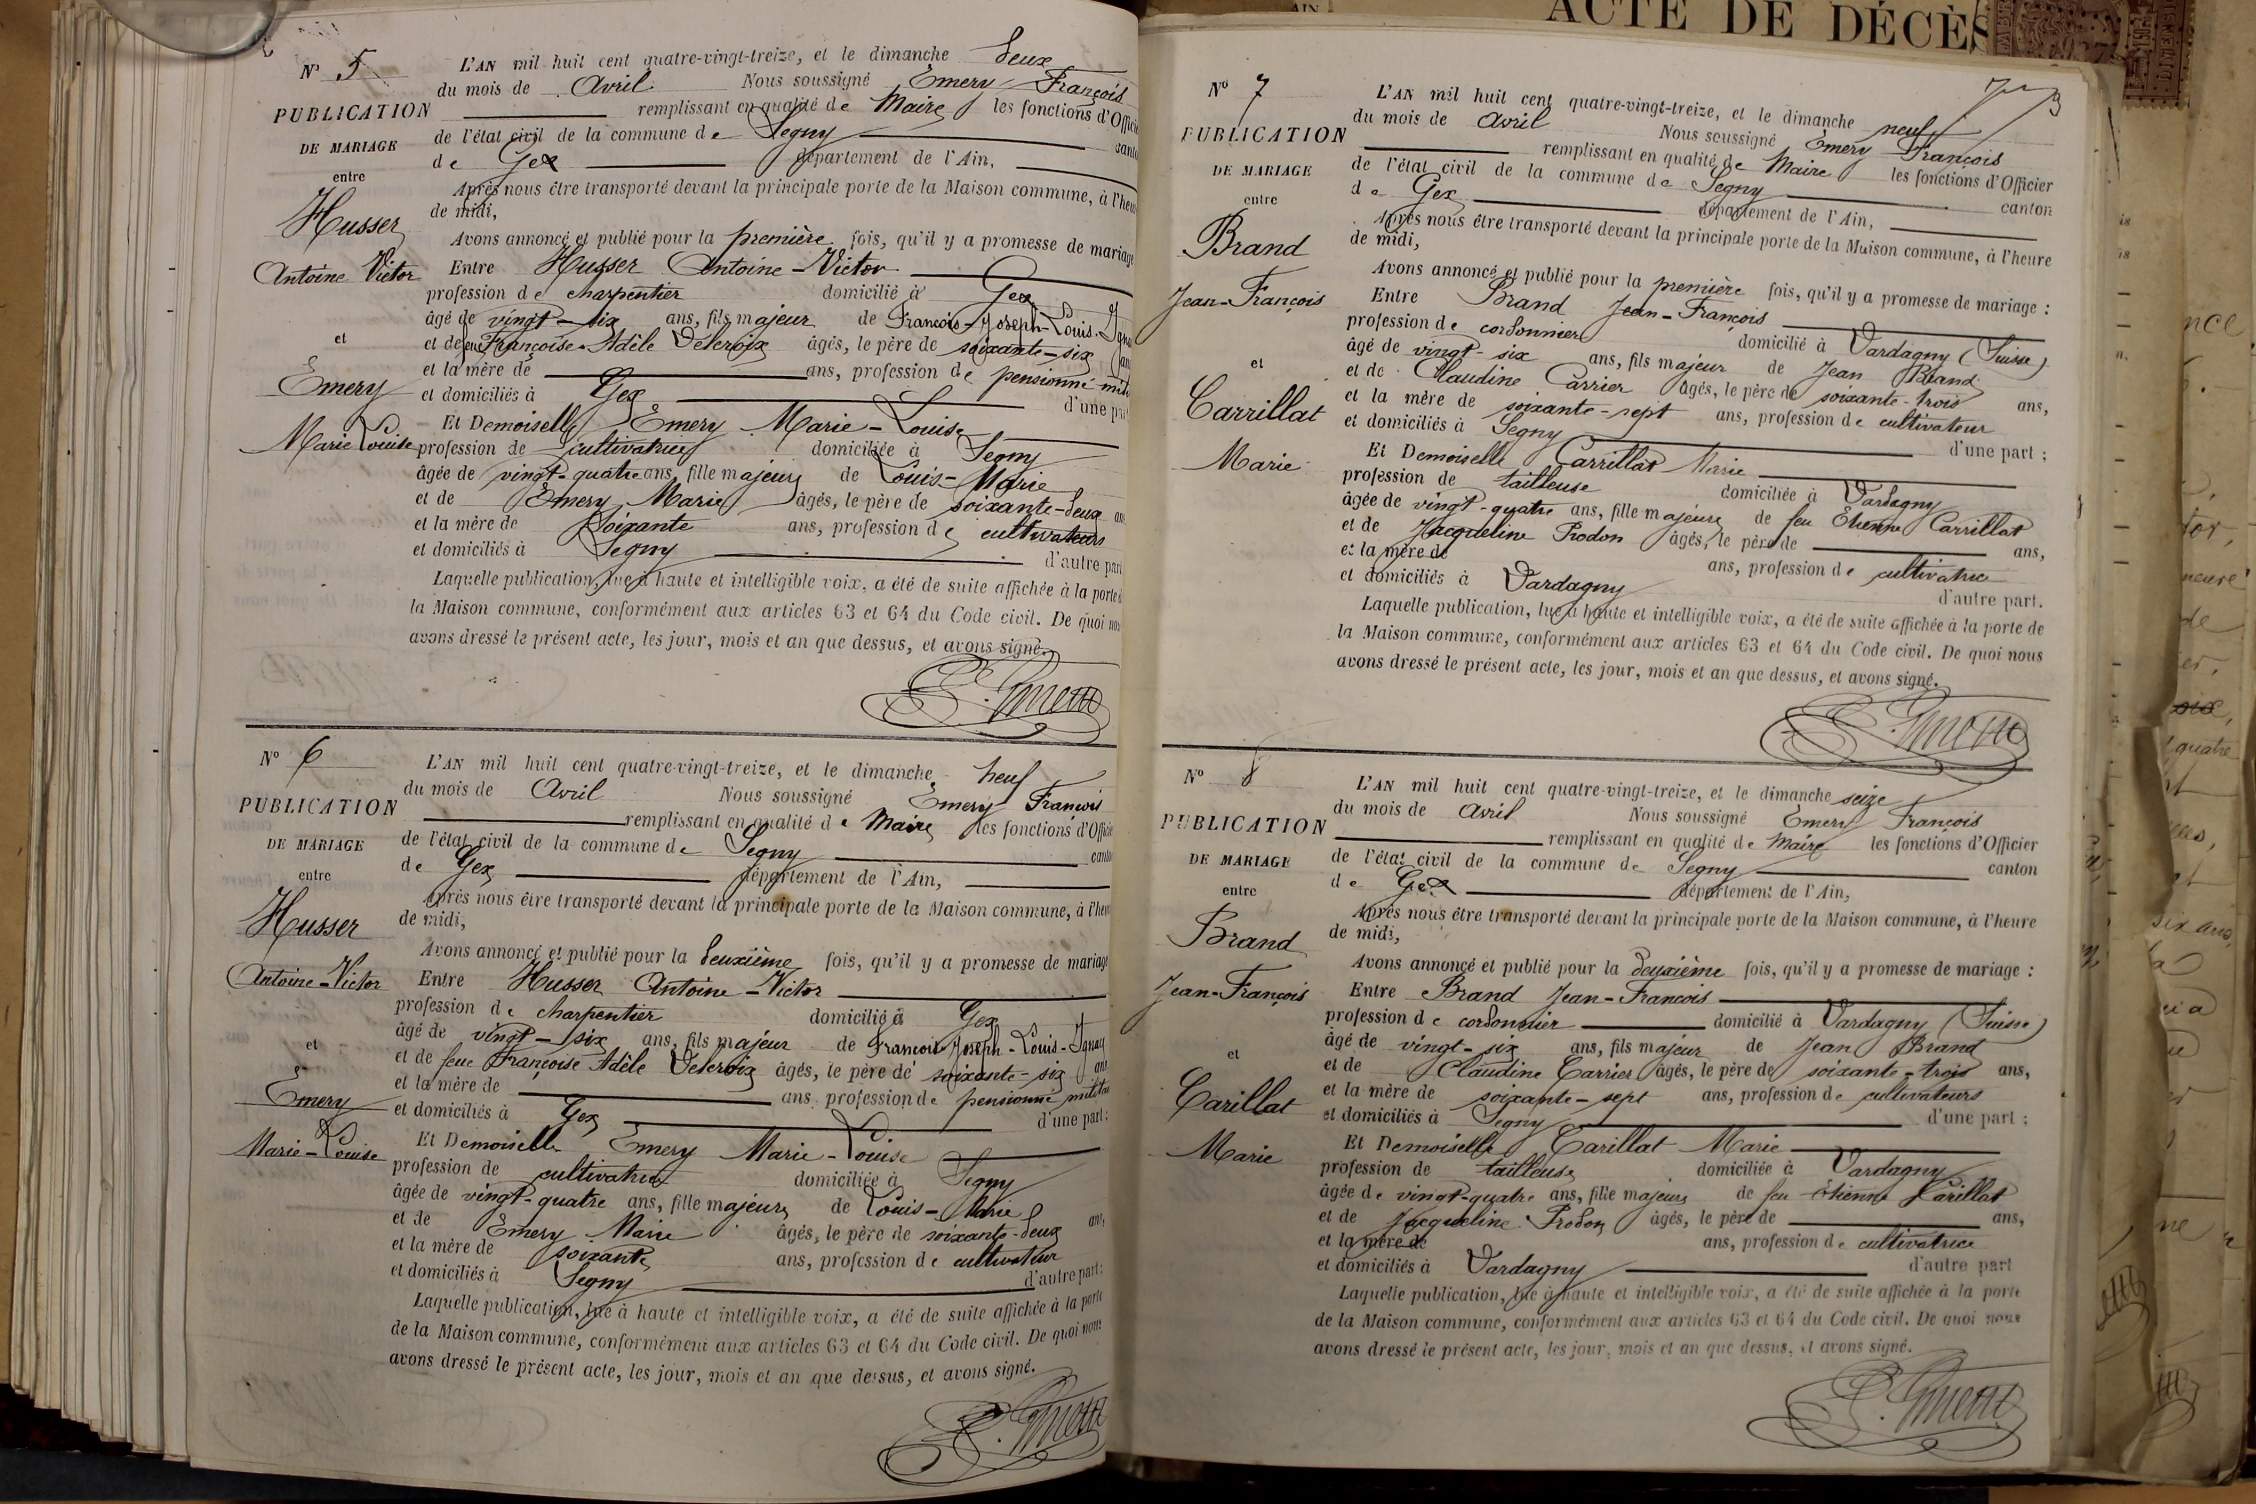 N° 5
PUBLICATION
DE MARIAGE
entre
Husser
Antoine Victor
et
Emery
Marie Louise
L'AN mil huit cent quatre-vingt-treize, et le dimanche deux
du mois de Avril Nous soussigné Emery François
remplissant en qualité de Maire les fonctions d'Officie
de l'état civil de la commune de Segny canto
de Gex département de l'Ain,
Après nous être transporté devant la principale porte de la Maison commune, à l'heu
de midi,
Avons annoncé et publié pour la première fois, qu'il y a promesse de mariage
Entre Husser Antoine-Victor
profession de charpentier domicilié à Gex
âgé de vingt-six ans, fils majeur de François-Joseph-Louis-Igna
et de feue Françoise-Adèle Delcroix âgés, le père de soixante-six ans
et la mère de ans, profession de pensionné mili
et domiciliés à Gex d'une par
Et Demoiselle Emery Marie-Louise
profession de cultivatrice domiciliée à Segny
âgée de vingt-quatre ans, fille majeure de Louis-Marie
et de Emery Marie âgés, le père de soixante-deux an
et la mère de soixante ans, profession de cultivateurs
et domiciliés à Segny d'autre part
Laquelle publication, lue à haute et intelligible voix, a été de suite affichée à la porte d
la Maison commune, conformément aux articles 63 et 64 du Code civil. De quoi nou
avons dressé le présent acte, les jour, mois et an que dessus, et avons signé.
F. Emery
N° 6
PUBLICATION
DE MARIAGE
entre
Husser
Antoine-Victor
et
Emery
Marie-Louise
L'AN mil huit cent quatre-vingt-treize, et le dimanche neuf
du mois de Avril Nous soussigné Emery François
remplissant en qualité de Maire les fonctions d'Officie
de l'état civil de la commune de Segny canto
de Gex département de l'Ain,
Après nous être transporté devant la principale porte de la Maison commune, à l'heu
de midi,
Avons annoncé et publié pour la deuxième fois, qu'il y a promesse de mariage
Entre Husser Antoine-Victor
profession de charpentier domicilié à Gex
âgé de vingt-six ans, fils majeur de François Joseph-Louis-Ignac
et de feue Françoise Adèle Delcroix âgés, le père de soixante-six ans
et la mère de ans, profession de pensionné militai
et domiciliés à Gex d'une part;
Et Demoiselle Emery Marie-Louise
profession de cultivatrice domiciliée à Segny
âgée de vingt-quatre ans, fille majeure de Louis-Marie
et de Emery Marie âgés, le père de soixante-deux ans,
et la mère de soixante ans, profession de cultivateur
et domiciliés à Segny d'autre part;
Laquelle publication, lue à haute et intelligible voix, a été de suite affichée à la porte
de la Maison commune, conformément aux articles 63 et 64 du Code civil. De quoi nous
avons dressé le présent acte, les jour, mois et an que dessus, et avons signé.
F. Emery
ACTE DE DÉCÈS
N° 7
PUBLICATION
DE MARIAGE
entre
Brand
Jean-François
et
Carrillat
Marie
L'AN mil huit cent quatre-vingt-treize, et le dimanche neuf
du mois de Avril Nous soussigné Emery François
remplissant en qualité de Maire les fonctions d'Officier
de l'état civil de la commune de Segny canton
de Gex département de l'Ain,
Après nous être transporté devant la principale porte de la Maison commune, à l'heure
de midi,
Avons annoncé et publié pour la première fois, qu'il y a promesse de mariage :
Entre Brand Jean-François
profession de cordonnier domicilié à Vardagny (Suisse)
âgé de vingt-six ans, fils majeur de Jean Brand
et de Claudine Carrier âgés, le père de soixante-trois ans,
et la mère de soixante-sept ans, profession de cultivateur
et domiciliés à Segny d'une part;
Et Demoiselle Carrillat Marie
profession de tailleuse domiciliée à Vardagny
âgée de vingt-quatre ans, fille majeure de feu Etienne Carrillat
et de Jacqueline Prodon âgés, le père de ans,
et la mère de ans, profession de cultivatrice
et domiciliés à Vardagny d'autre part.
Laquelle publication, lue à haute et intelligible voix, a été de suite affichée à la porte de
la Maison commune, conformément aux articles 63 et 64 du Code civil. De quoi nous
avons dressé le présent acte, les jour, mois et an que dessus, et avons signé.
F. Emery
N° 8
PUBLICATION
DE MARIAGE
entre
Brand
Jean-François
et
Carillat
Marie
L'AN mil huit cent quatre-vingt-treize, et le dimanche seize
du mois de Avril Nous soussigné Emery François
remplissant en qualité de Maire les fonctions d'Officier
de l'état civil de la commune de Segny canton
de Gex département de l'Ain,
Après nous être transporté devant la principale porte de la Maison commune, à l'heure
de midi,
Avons annoncé et publié pour la deuxième fois, qu'il y a promesse de mariage :
Entre Brand Jean-François
profession de cordonnier domicilié à Vardagny (Suisse)
âgé de vingt-six ans, fils majeur de Jean Brand
et de Claudine Carrier âgés, le père de soixante-trois ans,
et la mère de soixante-sept ans, profession de cultivateurs
et domiciliés à Segny d'une part;
Et Demoiselle Carillat Marie
profession de tailleuse domiciliée à Vardagny
âgée de vingt-quatre ans, fille majeure de feu Etienne Carillat
et de Jacqueline Prodon âgés, le père de ans,
et la mère de ans, profession de cultivatrice
et domiciliés à Vardagny d'autre part
Laquelle publication, lue à haute et intelligible voix, a été de suite affichée à la porte
de la Maison commune, conformément aux articles 63 et 64 du Code civil. De quoi nous
avons dressé le présent acte, les jour, mois et an que dessus, et avons signé.
F. Emery